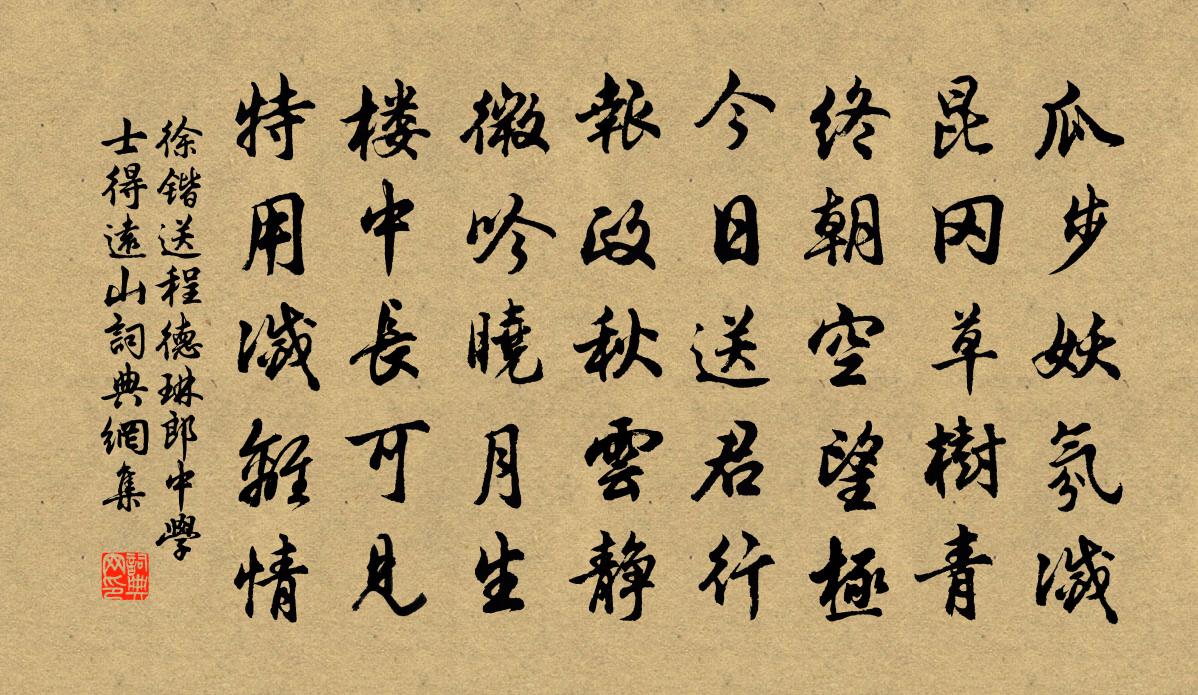 瓜步妖氛滅
昆冈草樹青
终朝空望極
今日送君行
報政秋雲静
微吟曉月生
楼中長可見
特用滅離情
徐鍇送程德琳郎中學
士得遠山詞典網集
詞典网印